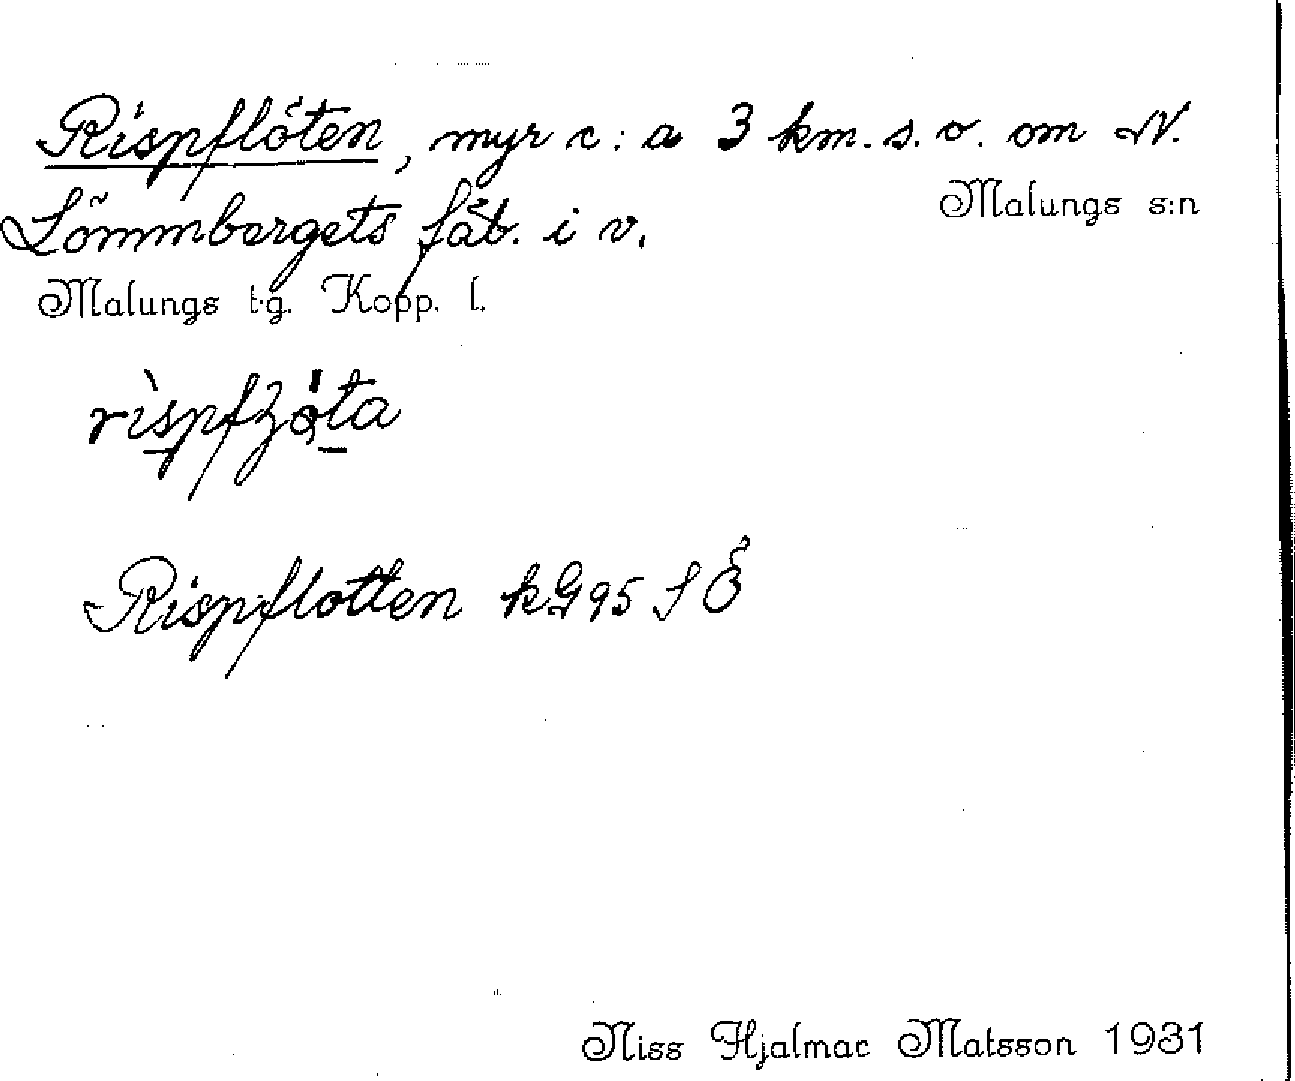 Rispflöten, myr c:a 3 km. s.v. om N.
Malungs s:n
Lömmbergets fäb. i v.
Malungs t:g. Kopp. l.
Rispflotten kG95 SÖ
Niss Hjalmar Matsson 1931